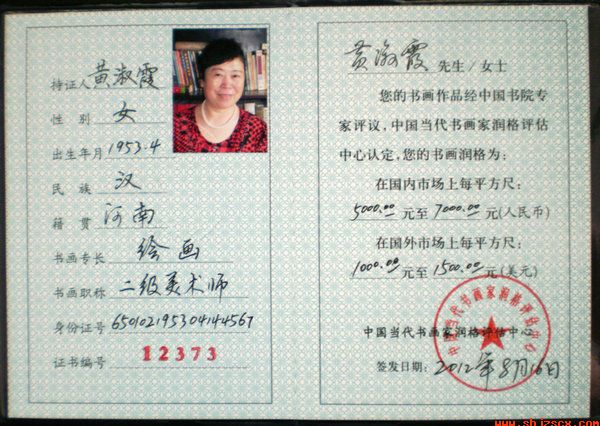 持证人 黄淑霞
性 别 女
出生年月 1953.4
民 族 汉
籍 贯 河南
书画专长 绘画
书画职称 二级美术师
身份证号 650102195304144567
证书编号 12373
黄淑霞 先生/女士
您的书画作品经中国书院专
家评议，中国当代书画家润格评估
中心认定，您的书画润格为：
在国内市场上每平方尺：
5000.00 元至 7000.00 元(人民币)
在国外市场上每平方尺：
1000.00 元至 1500.00 元(美元)
中国当代书画家润格评估中心
中国当代书画家润格评估中心
签发日期： 2012年8月16日
www.sbjzscx.com